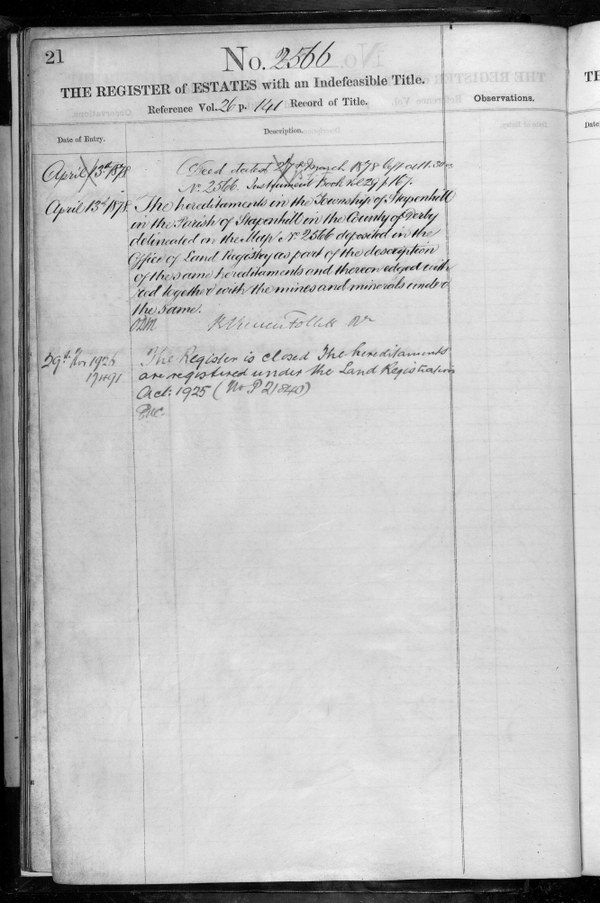 21
No. 2566
THE REGISTER of ESTATES with an Indefeasible Title.
Reference Vol. 26 p. 141 Record of Title.
Observations.
Date of Entry.
Description.
April 13th 1878
Deed dated 27th March 1878 left at 11.30
No. 2566 Instrument Book Vol. p 167.
April 13th 1878
The hereditaments in the Township of Stapenhill
in the Parish of Stapenhill in the County of Derby
delineated on the Map No. 2566 deposited in the
Office of Land Registry as part of the description
of the same hereditaments and thereon edged with
red together with the mines and minerals under
the same.
Follett
29th Nov 1926
The Register is closed The hereditaments
are registered under the Land Registration
Act: 1925 (No P 21840)